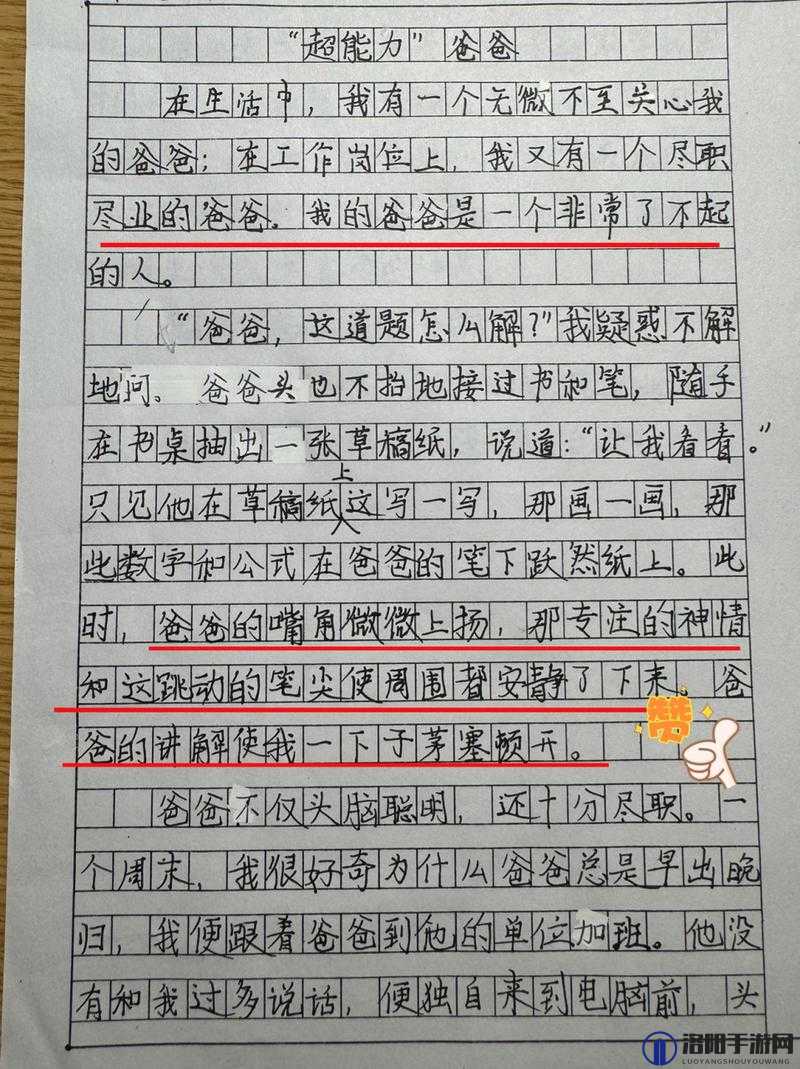 “超能力”爸爸
在生活中，我有一个无微不至关心我
的爸爸；在工作岗位上，我又有一个尽职
尽业的爸爸。我的爸爸是一个非常了不起
的人。
“爸爸，这道题怎么解？”我疑惑不解
地问。爸爸头也不抬地接过书和笔，随手
在书桌抽出一张草稿纸，说道：“让我看看。”
只见他在草稿纸上这写一写，那画一画，那
些数字和公式在爸爸的笔下跃然纸上。此
时，爸爸的嘴角微微上扬，那专注的神情
和这跳动的笔尖使周围都安静了下来。爸
赞
爸的讲解使我一下子茅塞顿开。
爸爸不仅头脑聪明，还十分尽职。一
个周末，我很好奇为什么爸爸总是早出晚
归，我便跟着爸爸到他的单位加班。他没
有和我过多说话，便独自来到电脑前，头
洛阳手游网
LUOYANGSHOUYOUWANG